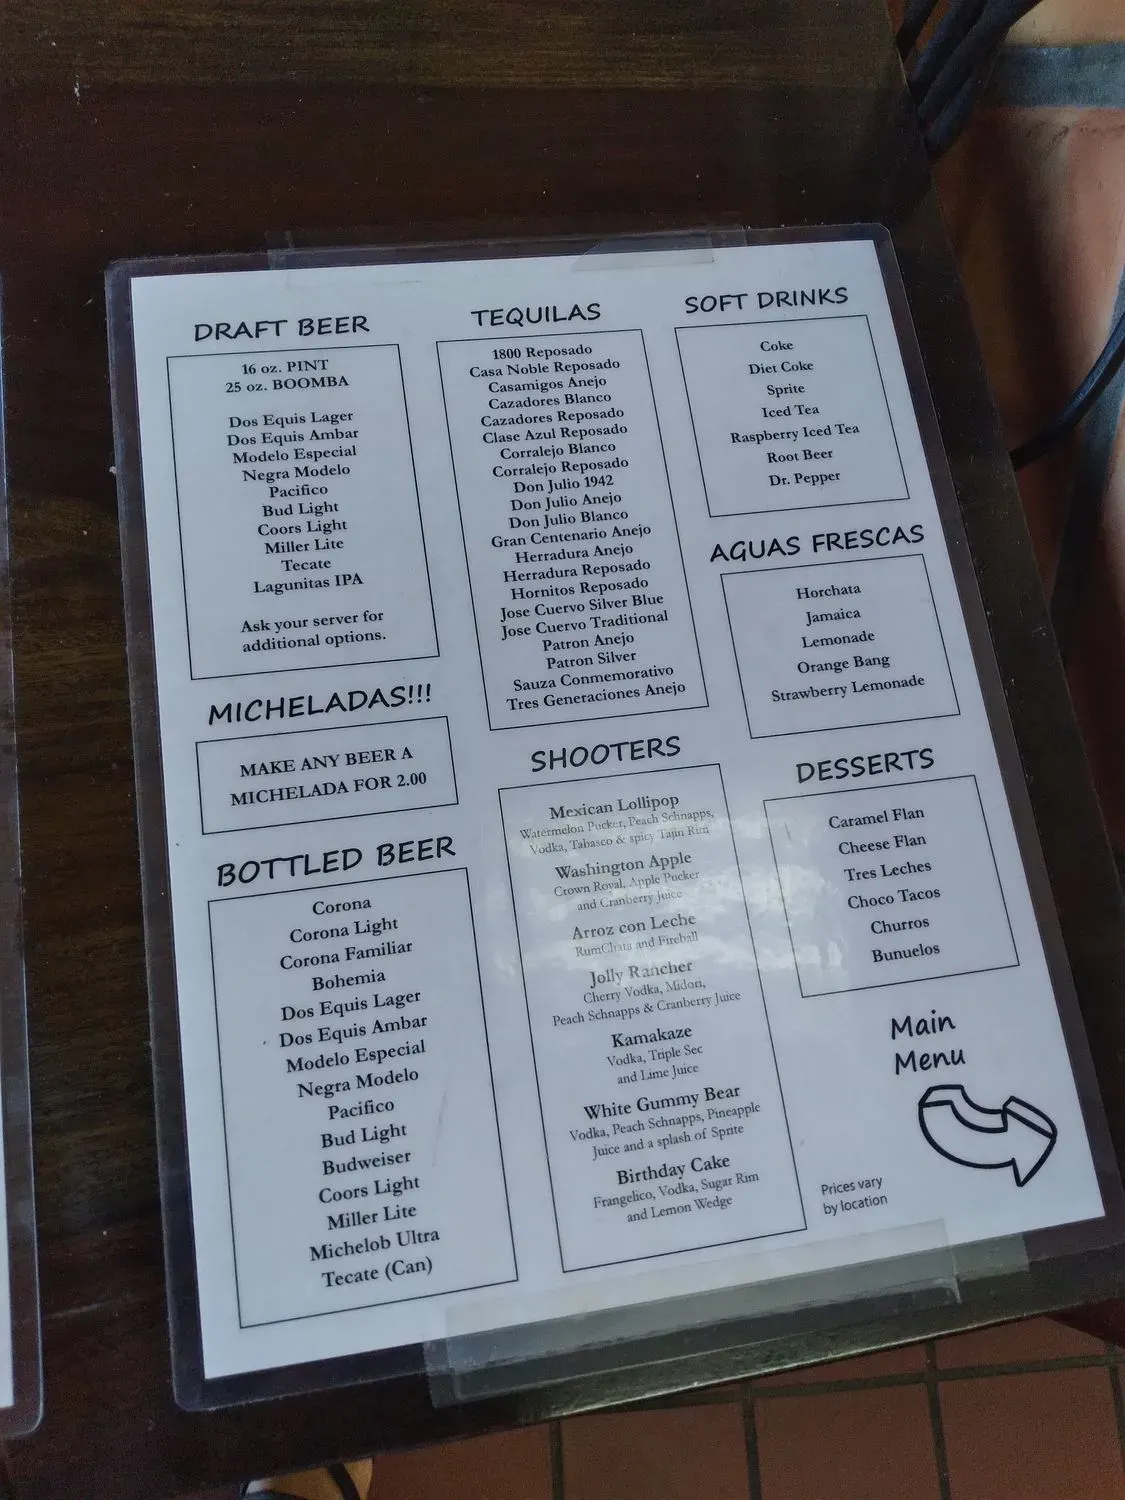 DRAFT BEER
16 oz. PINT
25 oz. BOOMBA
Dos Equis Lager
Dos Equis Ambar
Modelo Especial
Negra Modelo
Pacifico
Bud Light
Coors Light
Miller Lite
Tecate
Lagunitas IPA
Ask your server for
additional options.
MICHELADAS!!!
MAKE ANY BEER A
MICHELADA FOR 2.00
BOTTLED BEER
Corona
Corona Light
Corona Familiar
Bohemia
Dos Equis Lager
Dos Equis Ambar
Modelo Especial
Negra Modelo
Pacifico
Bud Light
Budweiser
Coors Light
Miller Lite
Michelob Ultra
Tecate (Can)
TEQUILAS
1800 Reposado
Casa Noble Reposado
Casamigos Anejo
Cazadores Blanco
Cazadores Reposado
Clase Azul Reposado
Corralejo Blanco
Corralejo Reposado
Don Julio 1942
Don Julio Anejo
Don Julio Blanco
Gran Centenario Anejo
Herradura Anejo
Herradura Reposado
Hornitos Reposado
Jose Cuervo Silver Blue
Jose Cuervo Traditional
Patron Anejo
Patron Silver
Sauza Conmemorativo
Tres Generaciones Anejo
SHOOTERS
Mexican Lollipop
Watermelon Pucker, Peach Schnapps,
Vodka, Tabasco & spicy Tajin Rim
Washington Apple
Crown Royal, Apple Pucker
and Cranberry Juice
Arroz con Leche
RumChata and Fireball
Jolly Rancher
Cherry Vodka, Midori,
Peach Schnapps & Cranberry Juice
Kamakaze
Vodka, Triple Sec
and Lime Juice
White Gummy Bear
Vodka, Peach Schnapps, Pineapple
Juice and a splash of Sprite
Birthday Cake
Frangelico, Vodka, Sugar Rim
and Lemon Wedge
SOFT DRINKS
Coke
Diet Coke
Sprite
Iced Tea
Raspberry Iced Tea
Root Beer
Dr. Pepper
AGUAS FRESCAS
Horchata
Jamaica
Lemonade
Orange Bang
Strawberry Lemonade
DESSERTS
Caramel Flan
Cheese Flan
Tres Leches
Choco Tacos
Churros
Bunuelos
Main
Menu
Prices vary
by location